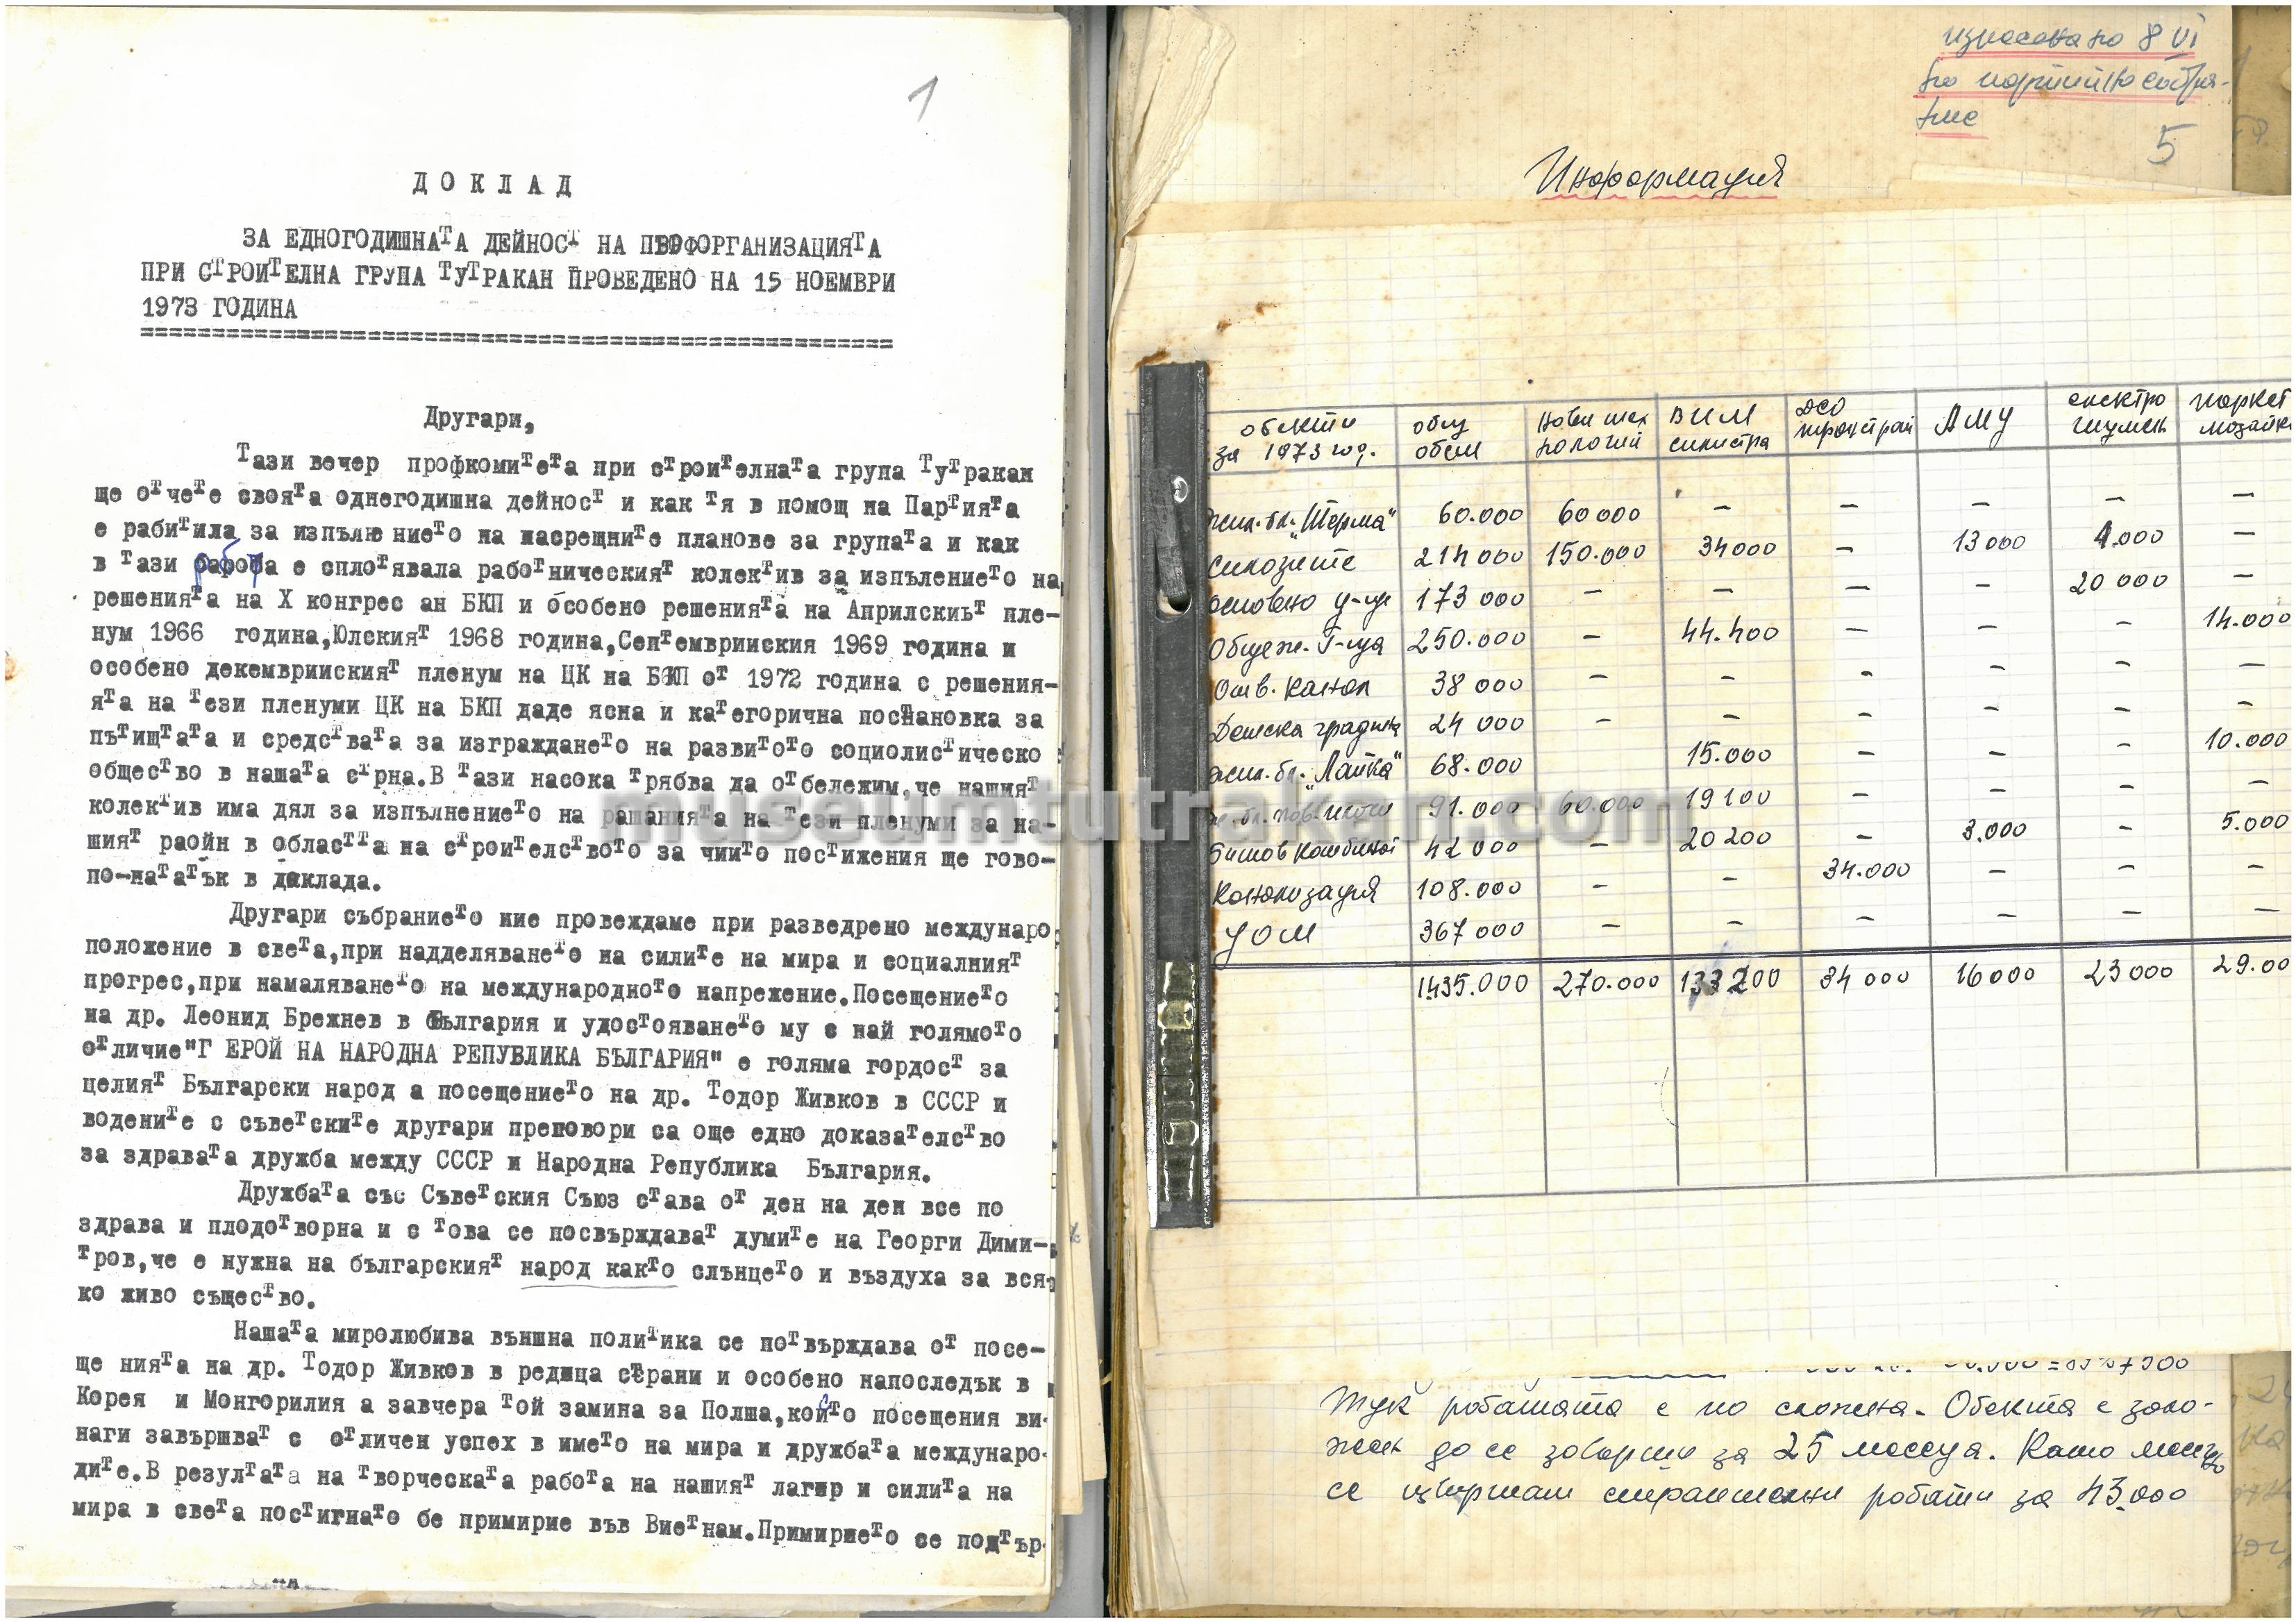 1
ДОКЛАД
ЗА ЕДНОГОДИШНАТА ДЕЙНОСТ НА ПРОФОРГАНИЗАЦИЯТА
ПРИ СТРОИТЕЛНА ГРУПА ТУТРАКАН ПРОВЕДЕНО НА 15 НОЕМВРИ
1973 ГОДИНА
Другари,
Тази вечер профкомитета при строителната група Тутракан
ще отчете своята одногодишна дейност и как тя в помощ на Партията
е рабитила за изпълнението на насрещните планове за групата и как
в тази работа е сплотявала работническият колектив за изпълението на
решенията на X конгрес ан БКП и особено решенията на Априлскиьт пле-
нум 1966 година,Юлският 1968 година,Септемврииския 1969 година и
особено декемврииският пленум на ЦК на БКП от 1972 година с решения-
ята на тези пленуми ЦК на БКП даде ясна и категорична постановка за
пътищтата и средствата за изграждането на развитото социолистическо
общество в нашата стрна.В тази насока трябва да отбележим,че нашият
колектив има дял за изпълнението на рашанията на тези пленуми за на-
шият раойн в областта на строителството за чиито постижения ще гово-
по-нататък в доклада.
Другари събранието ние провеждаме при разведрено междунаро
положение в света,при надделяването на силите на мира и социалният
прогрес,при намаляването на международното напрежение.Посещението
на др. Леонид Брежнев в България и удостояването му с най голямото
отличие"Г ЕРОЙ НА НАРОДНА РЕПУБЛИКА БЪЛГАРИЯ" е голяма гордост за
целият Български народ а посещението на др. Тодор Живков в СССР и
водените с съветските другари преговори са още едно доказателство
за здравата дружба между СССР и Народна Република България.
Дружбата със Съветския Съюз става от ден на ден все по
здрава и плодотворна и с това се посвърждават думите на Георги Дими-
тров,че е нужна на българският народ както слънцето и въздуха за вся-
ко живо същество.
Нашата миролюбива външна политика се потвърждава от посе-
ще нията на др. Тодор Живков в редица страни и особено напоследък в
Корея и Монгорилия а завчера той замина за Полша,които посещения ви-
наги завършват с отличен успех в името на мира и дружбата междунаро-
дите.В резултата на творческата работа на нашият лагер и силита на
мира в света постигнато бе примирие във Виетнам.Примирието се подтър-
изнесена на 8 VI
на партийно събра-
ние
5
Информация
обекти за 1973 год. общ обем нови тех нологий ВИМ силистра ДСО АМУ електро шумен паркет мозайка
жил.бл. "Шерма" 60.000 60000 – – – – –
Силозите 214000 150.000 34000 – 13000 4.000 –
основно у-ще 173000 – – – – 20000 –
Общеж. Т-ща 250.000 – 44.400 – – – 14.000
Отв. канал 38000 – – – – – –
Детска градина 24000 – – – – – –
жил.бл. "Лайка" 68.000 15.000 – – – 10.000
91.000 60.000 19100 – – – –
Битов комбинат 42000 – 20200 – 3.000 – 5.000
Канализация 108.000 – – 34.000 – – –
УОМ 367000 – – – – – –
1435.000 270.000 133200 34000 16000 23000 29.00
museumtutrakan.com
Тук работата е по сложна. Обекта е зало-
жен да се завърши за 25 месеца. Като
се извършат строителни работи за 43.000